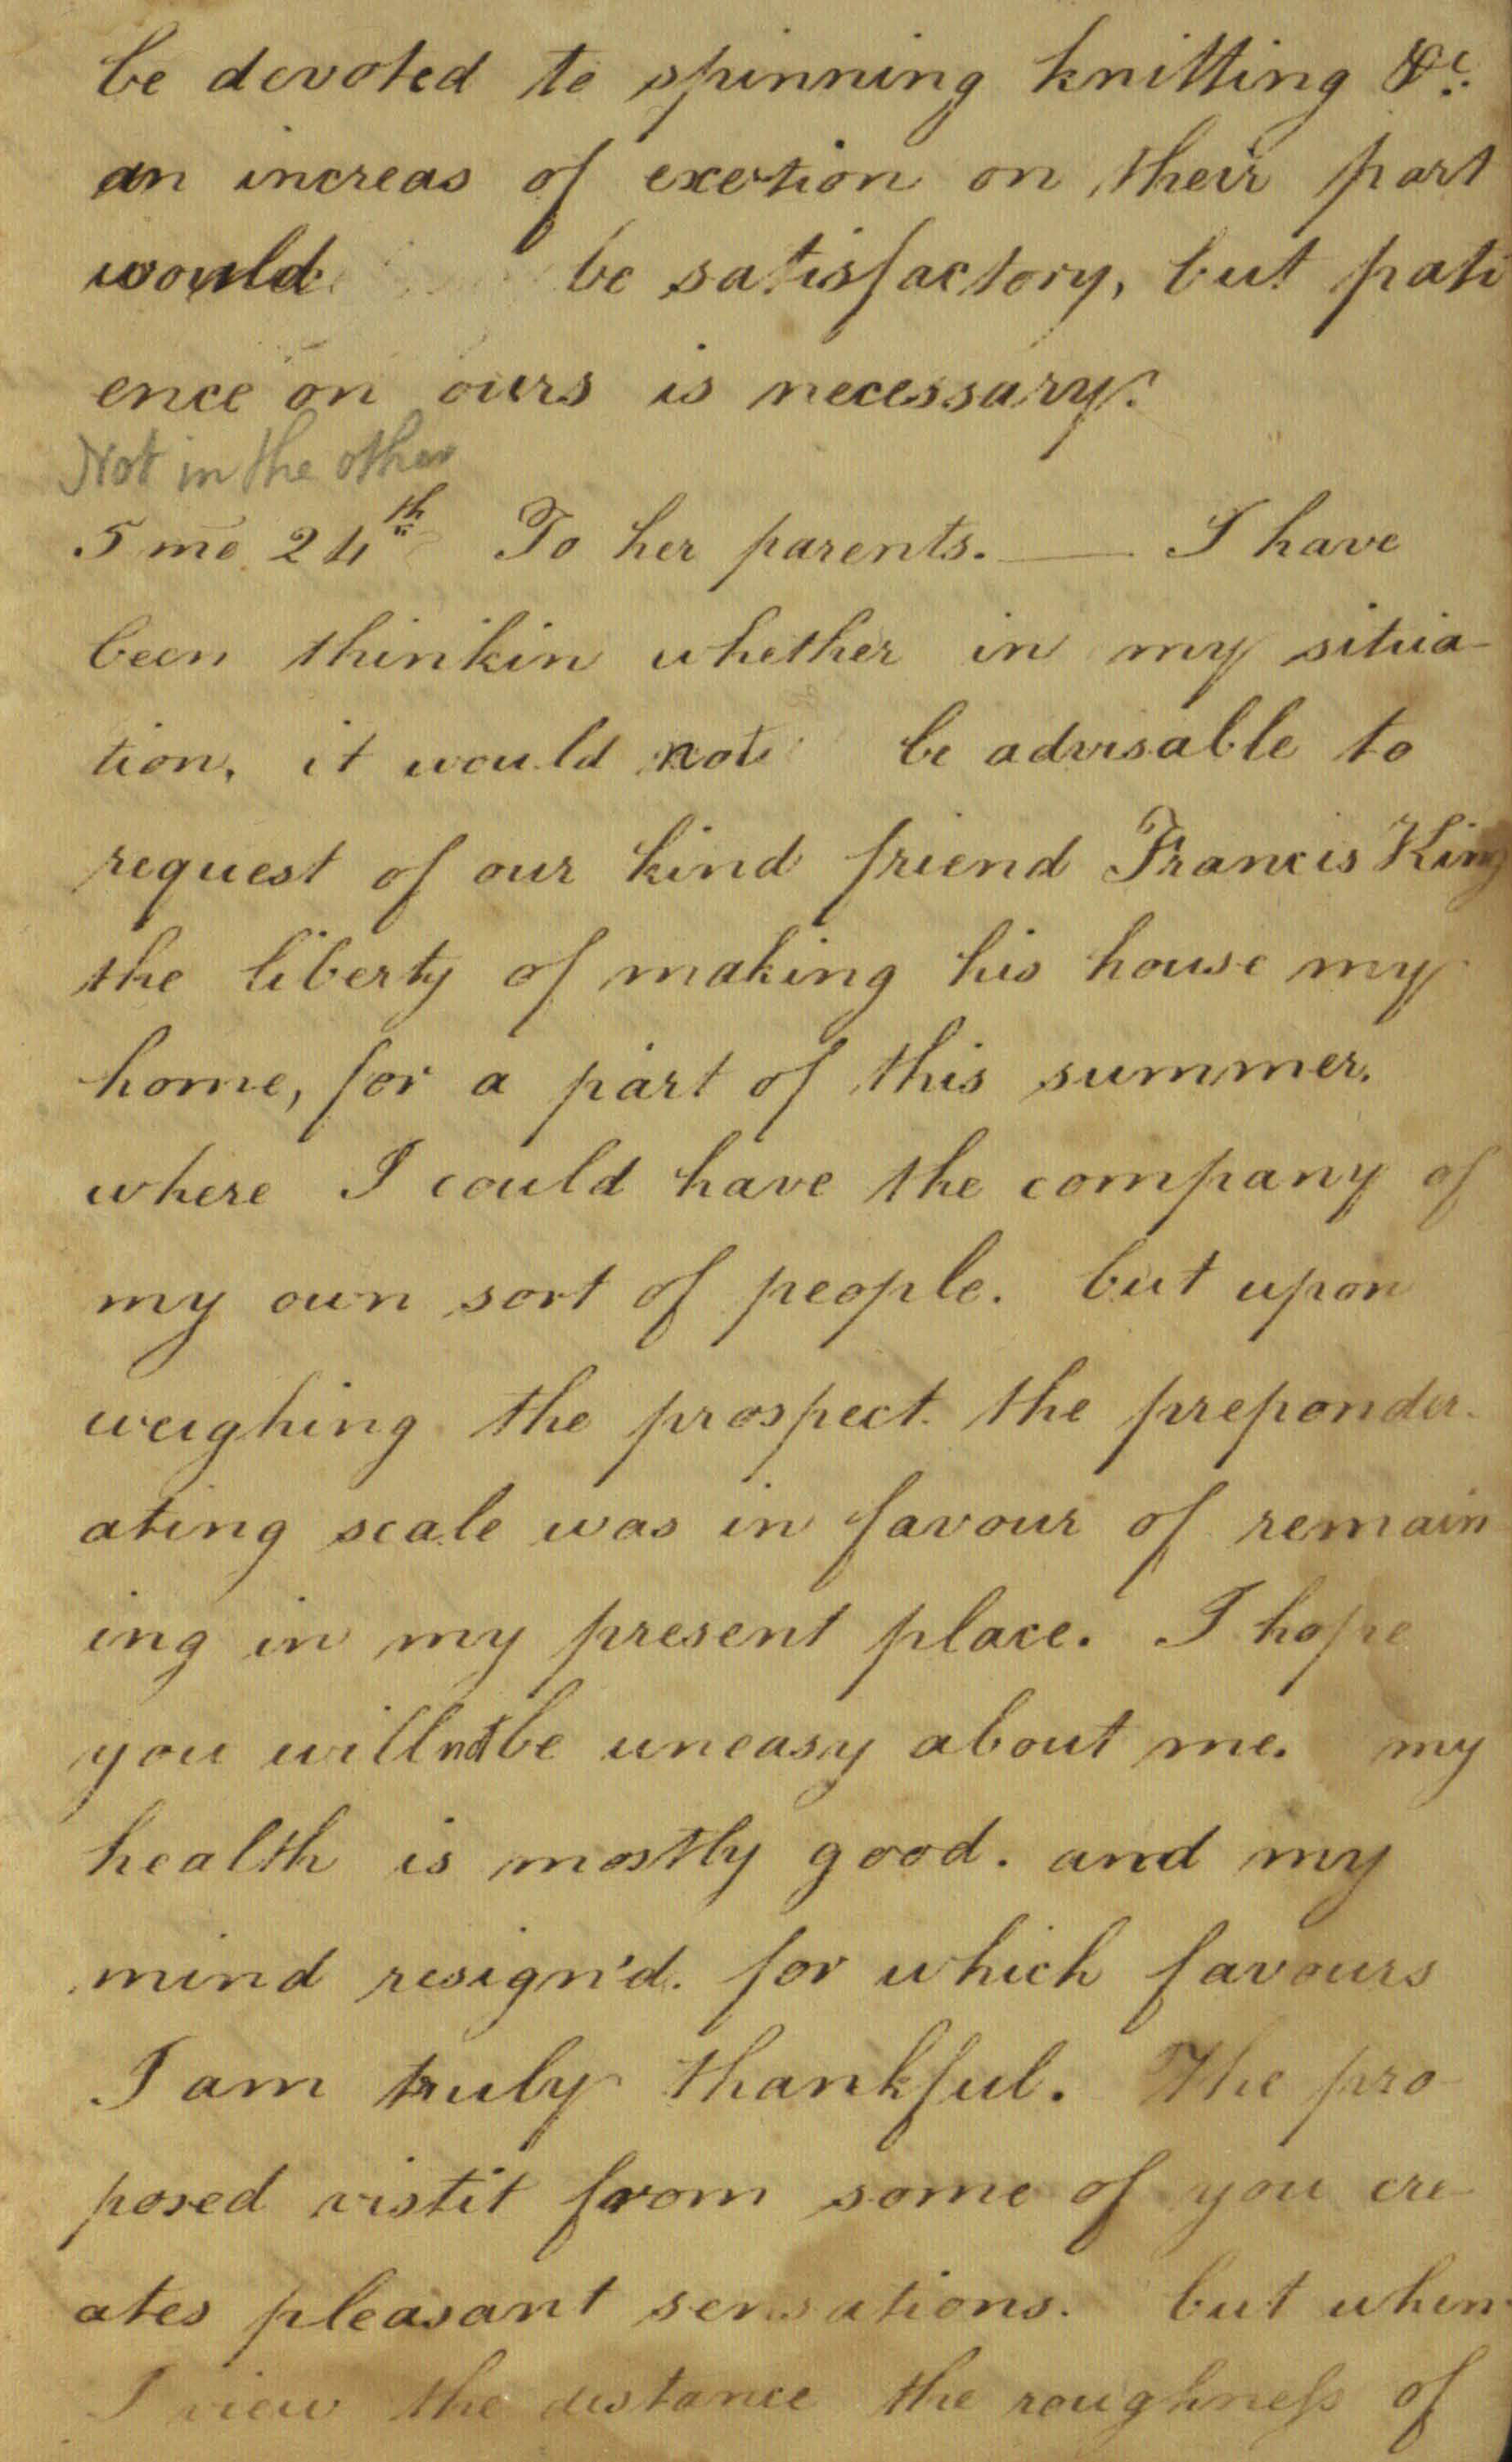 be devoted to spinning knitting &c.
an increas of exertion on their part
would be satisfactory, but pati
ence on ours is necessary.
Not in the other
5 mo 24th To her parents. — I have
been thinkin whether in my situa-
tion, it would not be advisable to
request of our kind friend Francis King
the liberty of making his house my
home, for a part of this summer.
where I could have the company of
my own sort of people. but upon
weighing the prospect. the preponder-
ating scale was in favour of remain
ing in my present place. I hope
you will not be uneasy about me. my
health is mostly good. and my
mind resign'd. for which favours
I am truly thankful. The pro-
posed vistit from some of you cre-
ates pleasant sensations. but when
I view the distance the roughness of